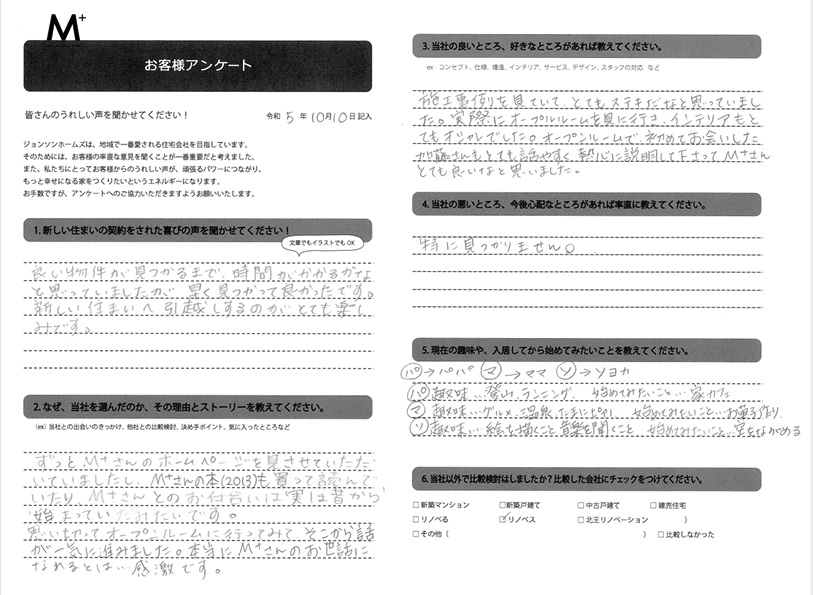 M+
お客様アンケート
皆さんのうれしい声を聞かせてください！
令和 5 年 10月10日記入
ジョンソンホームズは、地域で一番愛される住宅会社を目指しています。
そのためには、お客様の率直な意見を聞くことが一番重要だと考えました。
また、私たちにとってお客様からのうれしい声が、頑張るパワーにつながり、
もっと幸せになる家をつくりたいというエネルギーになります。
お手数ですが、アンケートへのご協力いただきますようお願いいたします。
1. 新しい住まいの契約をされた喜びの声を聞かせてください！
文章でもイラストでもOK
良い物件が見つかるまで、時間がかかるかな
と思っていましたが、早く見つかって良かったです。
新しい住まいへ引越しするのがとても楽し
みです。
2. なぜ、当社を選んだのか、その理由とストーリーを教えてください。
（ex）当社との出会いのきっかけ、他社との比較検討、決め手ポイント、気に入ったところなど
ずっとM+さんのホームページを見させていただ
いていましたし、M+さんの本(2013)も買って読んで
いたり、M+さんとのお付合いは実は昔から
始まっていたみたいです。
思い切ってオープンルームに行ってみて、そこから話
が一気に進みました。本当にM+さんのお世話に
なれるとは…感激です。
3. 当社の良いところ、好きなところがあれば教えてください。
ex コンセプト、仕様、構造、インテリア、サービス、デザイン、スタッフの対応 など
施工事例を見ていて、とてもステキだなと思っていまし
た。実際にオープンルームを見に行き、インテリアもと
てもオシャレでした。オープンルームで、初めてお会いした
加藤さんもとても話やすく、熱心に説明して下さって M+さん
とても良いなと思いました。
4. 当社の悪いところ、今後心配なところがあれば率直に教えてください。
特に見つかりません。
5. 現在の趣味や、入居してから始めてみたいことを教えてください。
パ→パパ マ→ママ ソ→ソヨカ
パ 趣味…登山、ランニング、 始めてみたいこと…家カフェ
マ 趣味…グルメ、温泉、たまにピアノ 始めてみたいこと…お菓子作り
ソ 趣味…絵を描くこと 音楽を聞くこと 始めてみたいこと…空をながめる
6. 当社以外で比較検討はしましたか？比較した会社にチェックをつけてください。
□新築マンション □新築戸建て □中古戸建て □建売住宅
□リノベる ☑リノベス □北王リノベーション ）
□その他（ ） □比較しなかった